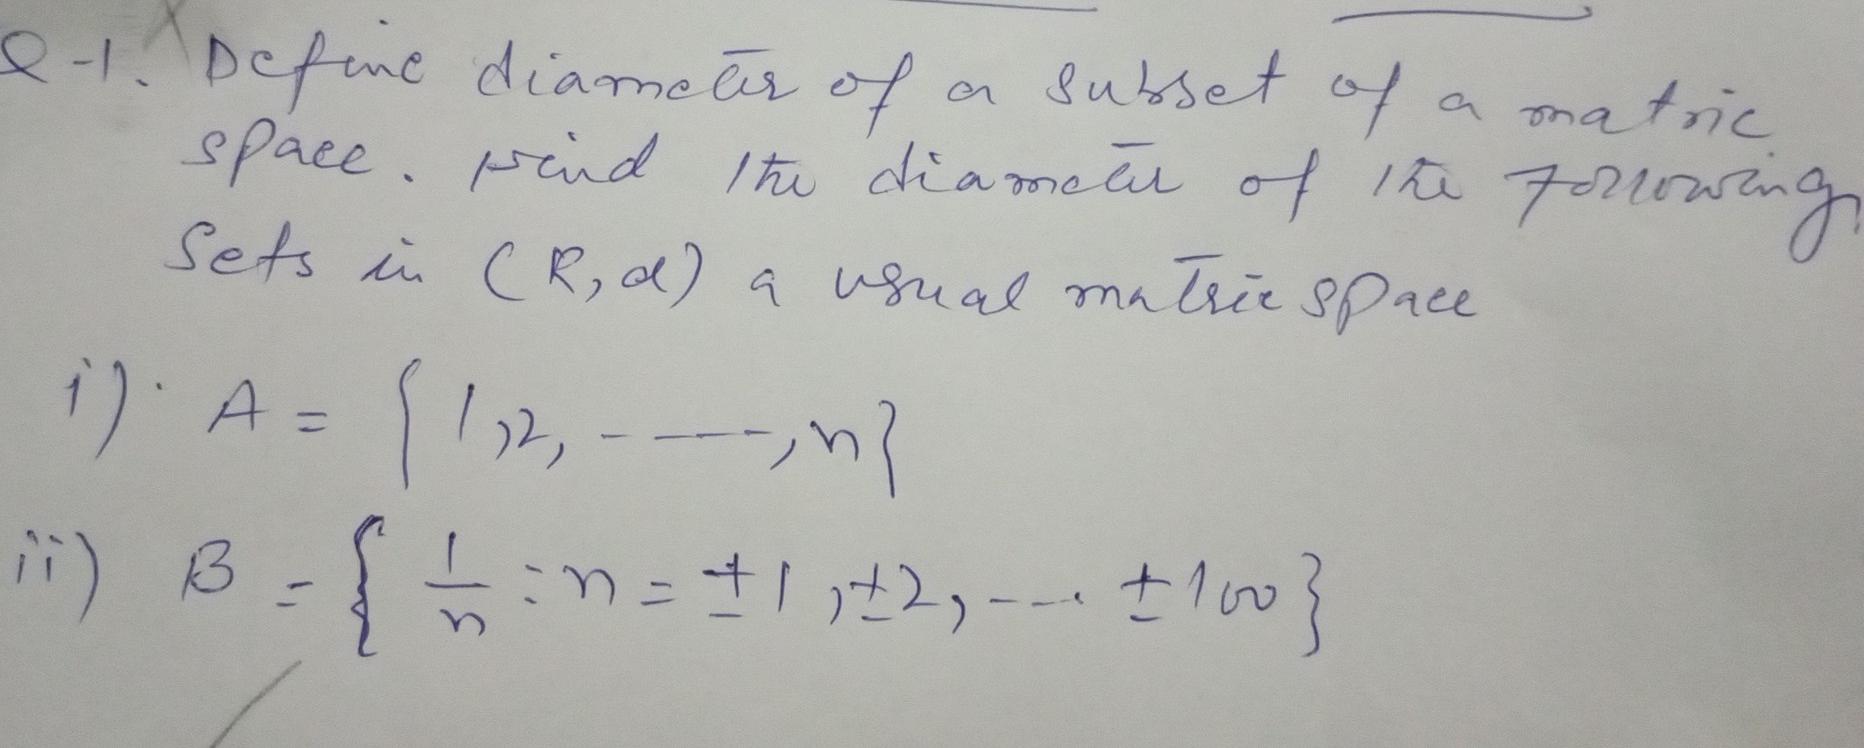 Q-1. Define diameter of a subset of a matric
space. Find the diameter of the following
Sets in (R, d) a usual matric space
i) A = { 1, 2, - - - -, n}
ii) B = { 1/n : n = ±1, ±2, - - - ±100}